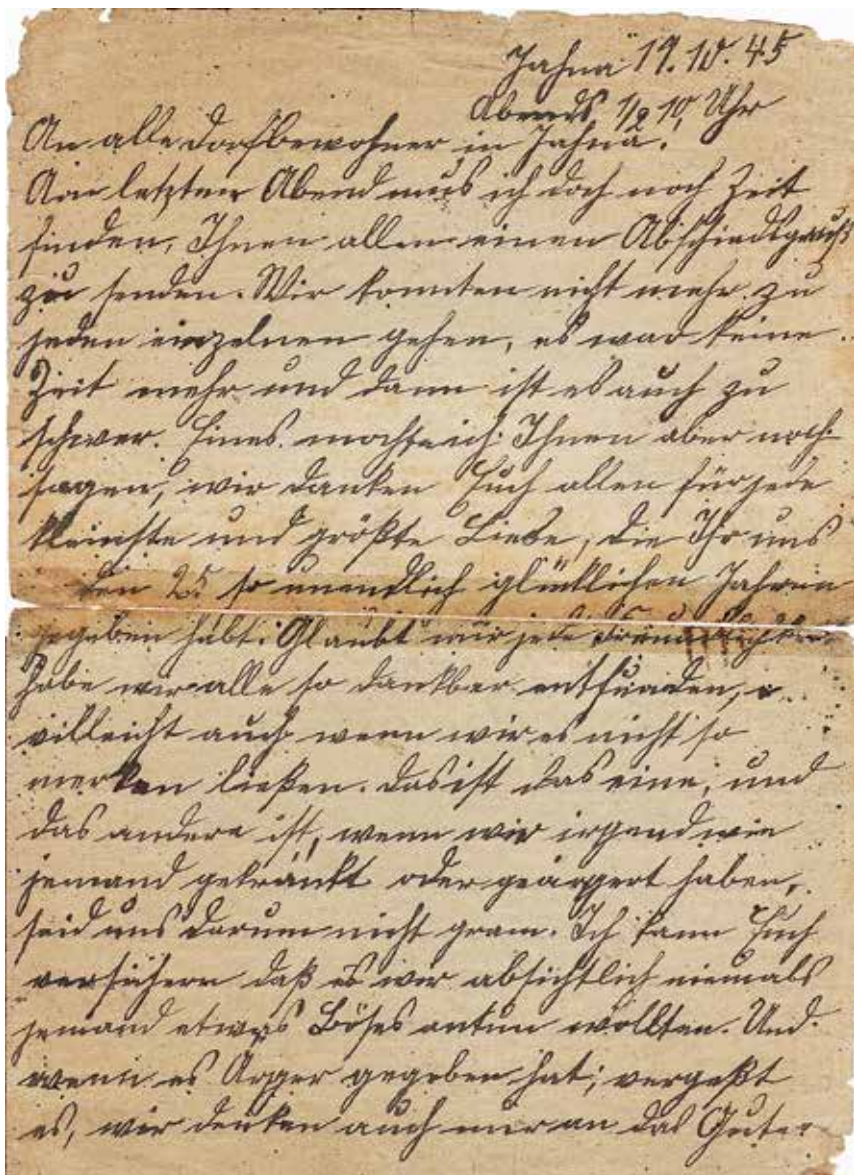 Jahna 19.10.45
Abends 1/2 10, Uhr
An alle Dorfbewohner in Jahna.
Am letzten Abend mus ich doch noch Zeit
finden, Ihnen allen einen Abschiedsgruß
zu senden. Wir konnten nicht mehr zu
jeden einzelnen gehen, es war keine
Zeit mehr und dann ist es auch zu
schwer. Eines mochte ich Ihnen aber noch
sagen, wir danken Euch allen für jede
kleinste und größte Liebe, die Ihr uns
den 25 so unendlich glücklichen Jahren
gegeben habt. Glaubt mir jede
habe wir alle so dankber entfunden,
villeicht auch wenn wir es nicht so
merken ließen. Das ist das eine, und
das andere ist, wenn wir irgend wie
jemand gekränkt oder geärgert haben,
seid uns darum nicht gram. Ich kann Euch
versichern daß es wir absichtlich niemals
jemand etwas Böses antun wollten. Und
wenn es Ärger gegeben hat; vergeßt
es, wir denken auch nur an das Gute